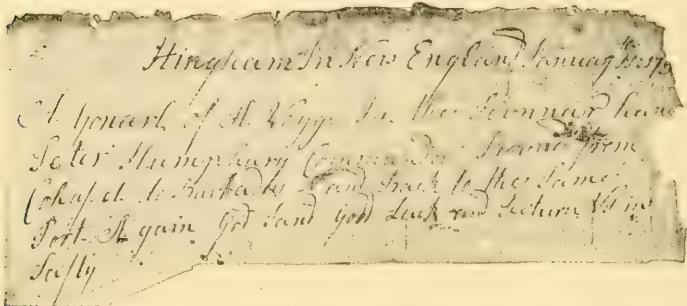 Hingham In New England January
A Jonarl of A Voyge In the Scunnar hana
Peter Humphary Commander Bound from
Cohaset to Barbados and back to the same
Port Again God Sand Good Luck and Return Us in
Safty